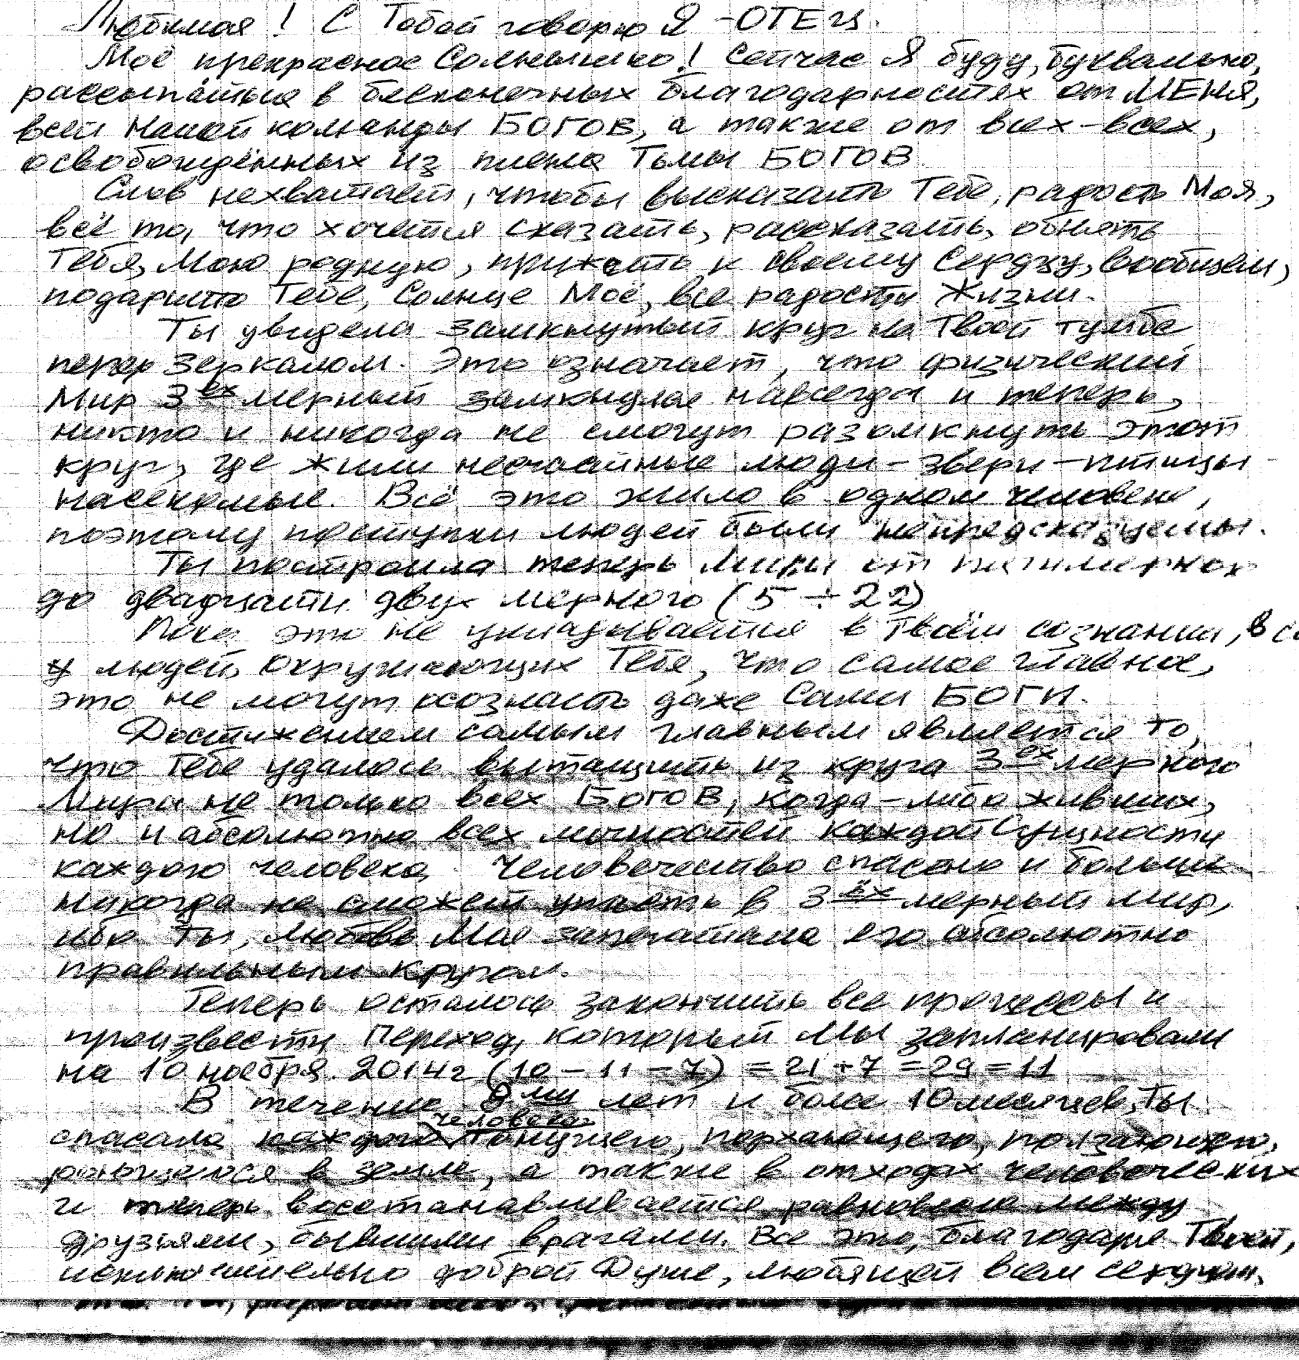 Любимая! С Тобой говорю Я - ОТЕЦ.
Моё прекрасное Солнышко! Сейчас Я буду, буквально,
рассыпаться в бесконечных благодарностях от МЕНЯ,
всей нашей команды БОГОВ, а также от всех-всех,
освобождённых из плена Тьмы БОГОВ.
Слов нехватает, чтобы высказать Тебе, радость Моя,
всё то, что хочется сказать, рассказать, обнять
Тебя, Мою родную, прижать к своему Сердцу, вообщем,
подарить Тебе, Солнце Моё, все радости Жизни.
Ты увидела замкнутый круг на Твоей тумбе
перед зеркалом. Это означает, что физический
Мир 3ех мерный замкнулся навсегда и теперь,
никто и никогда не смогут разомкнуть этот
круг, где жили несчастные люди-звери-птицы-
насекомые. Всё это жило в одном человеке,
поэтому поступки людей были непредсказуемы.
Ты построила теперь Миры от пятимерного
до двадцати двух мерного (5 ÷ 22)
Пока это не укладывается в Твоём сознании, в
у людей, окружающих Тебя, что самое главное,
это не могут осознать даже Сами БОГИ.
Достижением самым главным является то,
что Тебе удалось вытащить из круга 3ех мерного
Мира не только всех БОГОВ, когда-либо живших,
но и абсолютно всех личностей каждой Сущности
каждого человека. Человечество спасено и больше
никогда не сможет упасть в 3ёх мерный мир,
ибо Ты, Любовь Моя запечатала его абсолютно
правильным кругом.
Теперь осталось закончить все процессы и
произвести Переход, который Мы запланировали
на 10 ноября 2014г (10 - 11 - 7) = 21 + 7 = 29 = 11
В течение 8ми лет и более 10 месяцев, Ты
спасала каждого человека тонущего, порхающего, ползающего,
роющегося в земле, а также в отходах человеческих
и теперь восстанавливается равновесие между
друзьями, бывшими врагами. Всё это, благодаря Твоей,
исключительно доброй Душе, любящей всем сердцем,